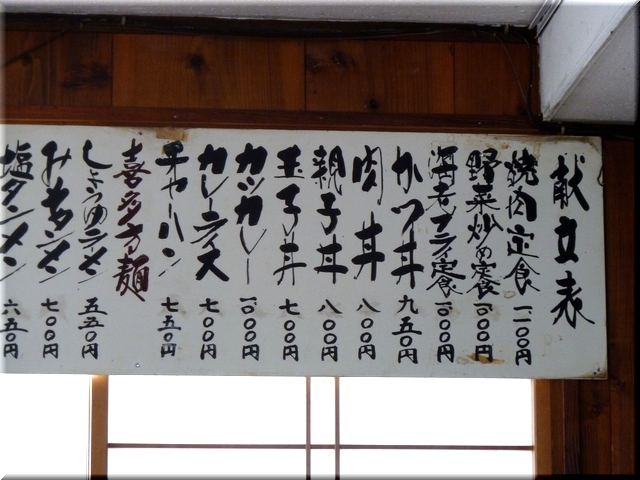 献立表
焼肉定食 一二〇〇円
野菜炒め定食 一〇〇〇円
海老フライ定食 一〇〇〇円
かつ丼 九五〇円
肉丼 八〇〇円
親子丼 八〇〇円
玉子丼 七〇〇円
カツカレー 一〇〇〇円
カレーライス 七〇〇円
チャーハン 七五〇円
喜多方麺
しょうゆラーメン 五五〇円
みそラーメン 七〇〇円
塩タンメン 六五〇円